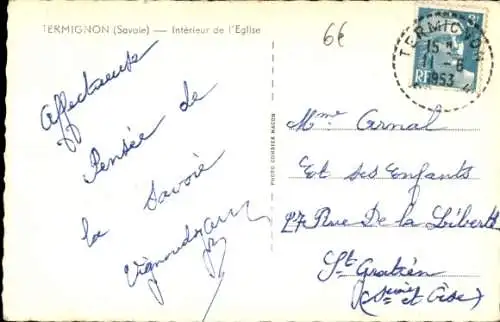 TERMIGNON (Savoie) — Intérieur de l'Eglise
6€
TERMIGNON
15
11 - 6
1953
RF
Affectueuse
Pensée de
la Savoie
PHOTO COMBIER MACON
Mme Arnal
Et ses Enfants
27 Rue De la Liberté
St Gratien
(Seine et Oise)